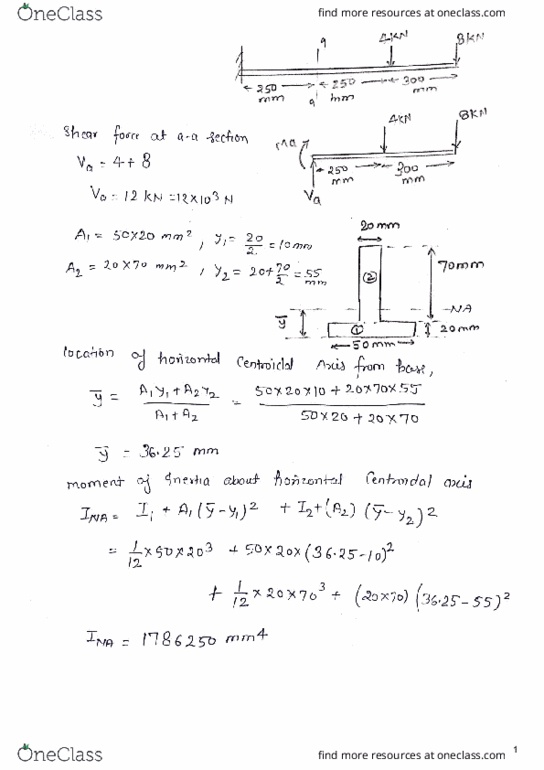 OneClass find more resources at oneclass.com
a 4kN 8kN
250 mm 250 mm 300 mm
a
Shear force at a-a section
Va = 4+8
Va = 12 kN = 12×10³ N
4kN 8kN
Ma
250 mm 300 mm
Va
A1 = 50×20 mm² , y1 = 20/2 = 10mm
A2 = 20×70 mm² , y2 = 20+70/2 = 55 mm
20mm
②
70mm
ȳ
NA
① 20mm
50mm
location of horizontal Centroidal Axis from base,
ȳ = (A1y1+A2y2)/(A1+A2) = (50×20×10+20×70×55)/(50×20+20×70)
ȳ = 36.25 mm
moment of Inertia about horizontal Centroidal axis
INA = I1 + A1(ȳ-y1)² + I2+(A2)(ȳ-y2)²
= 1/12×50×20³ + 50×20×(36.25-10)²
+ 1/12×20×70³ + (20×70)(36.25-55)²
INA = 1786250 mm⁴
1
OneClass find more resources at oneclass.com